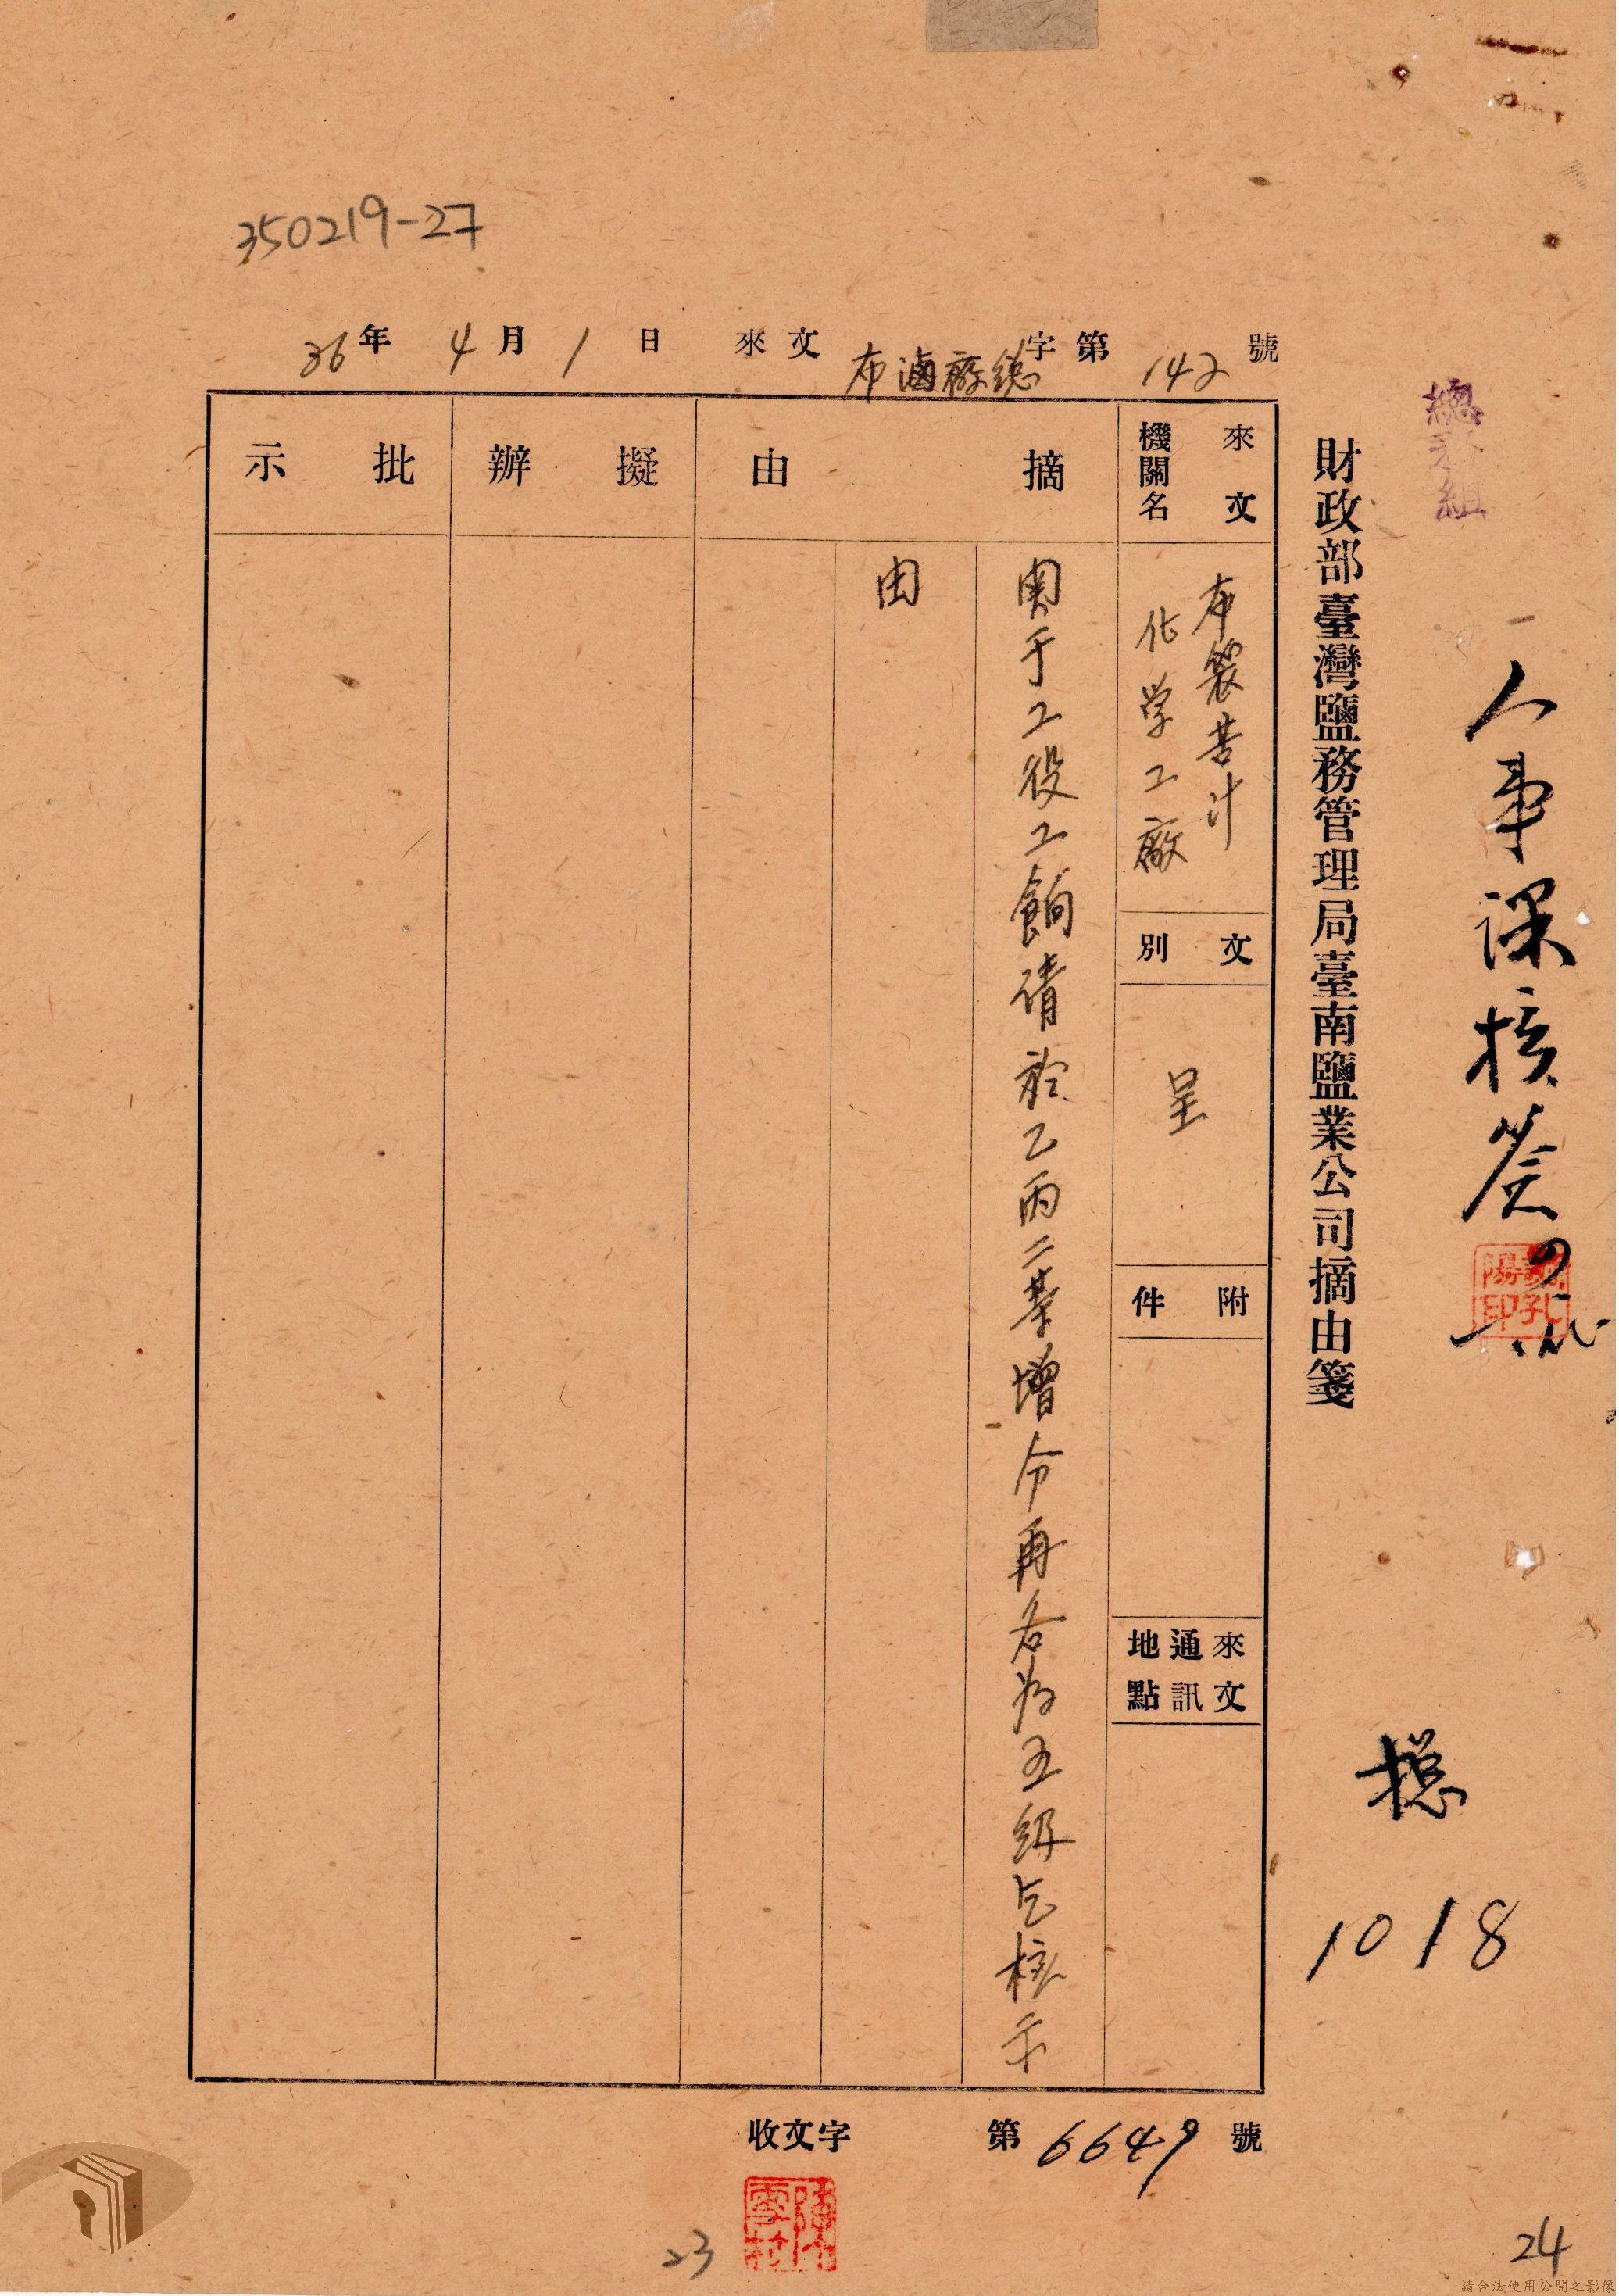 350219-27
36年4月1日 來文 布滷廠総字第142號
總務組
人事課核簽
財政部臺灣鹽務管理局臺南鹽業公司摘由箋
總
1018
來文機關名
布袋苦汁
化学工廠
文別
呈
附件
來文通訊地點
摘由
関于工役工餉請於乙丙二等增分再各為五級乞核示
由
擬辦
批示
收文字第6649號
23
24
請合法使用公開之影像